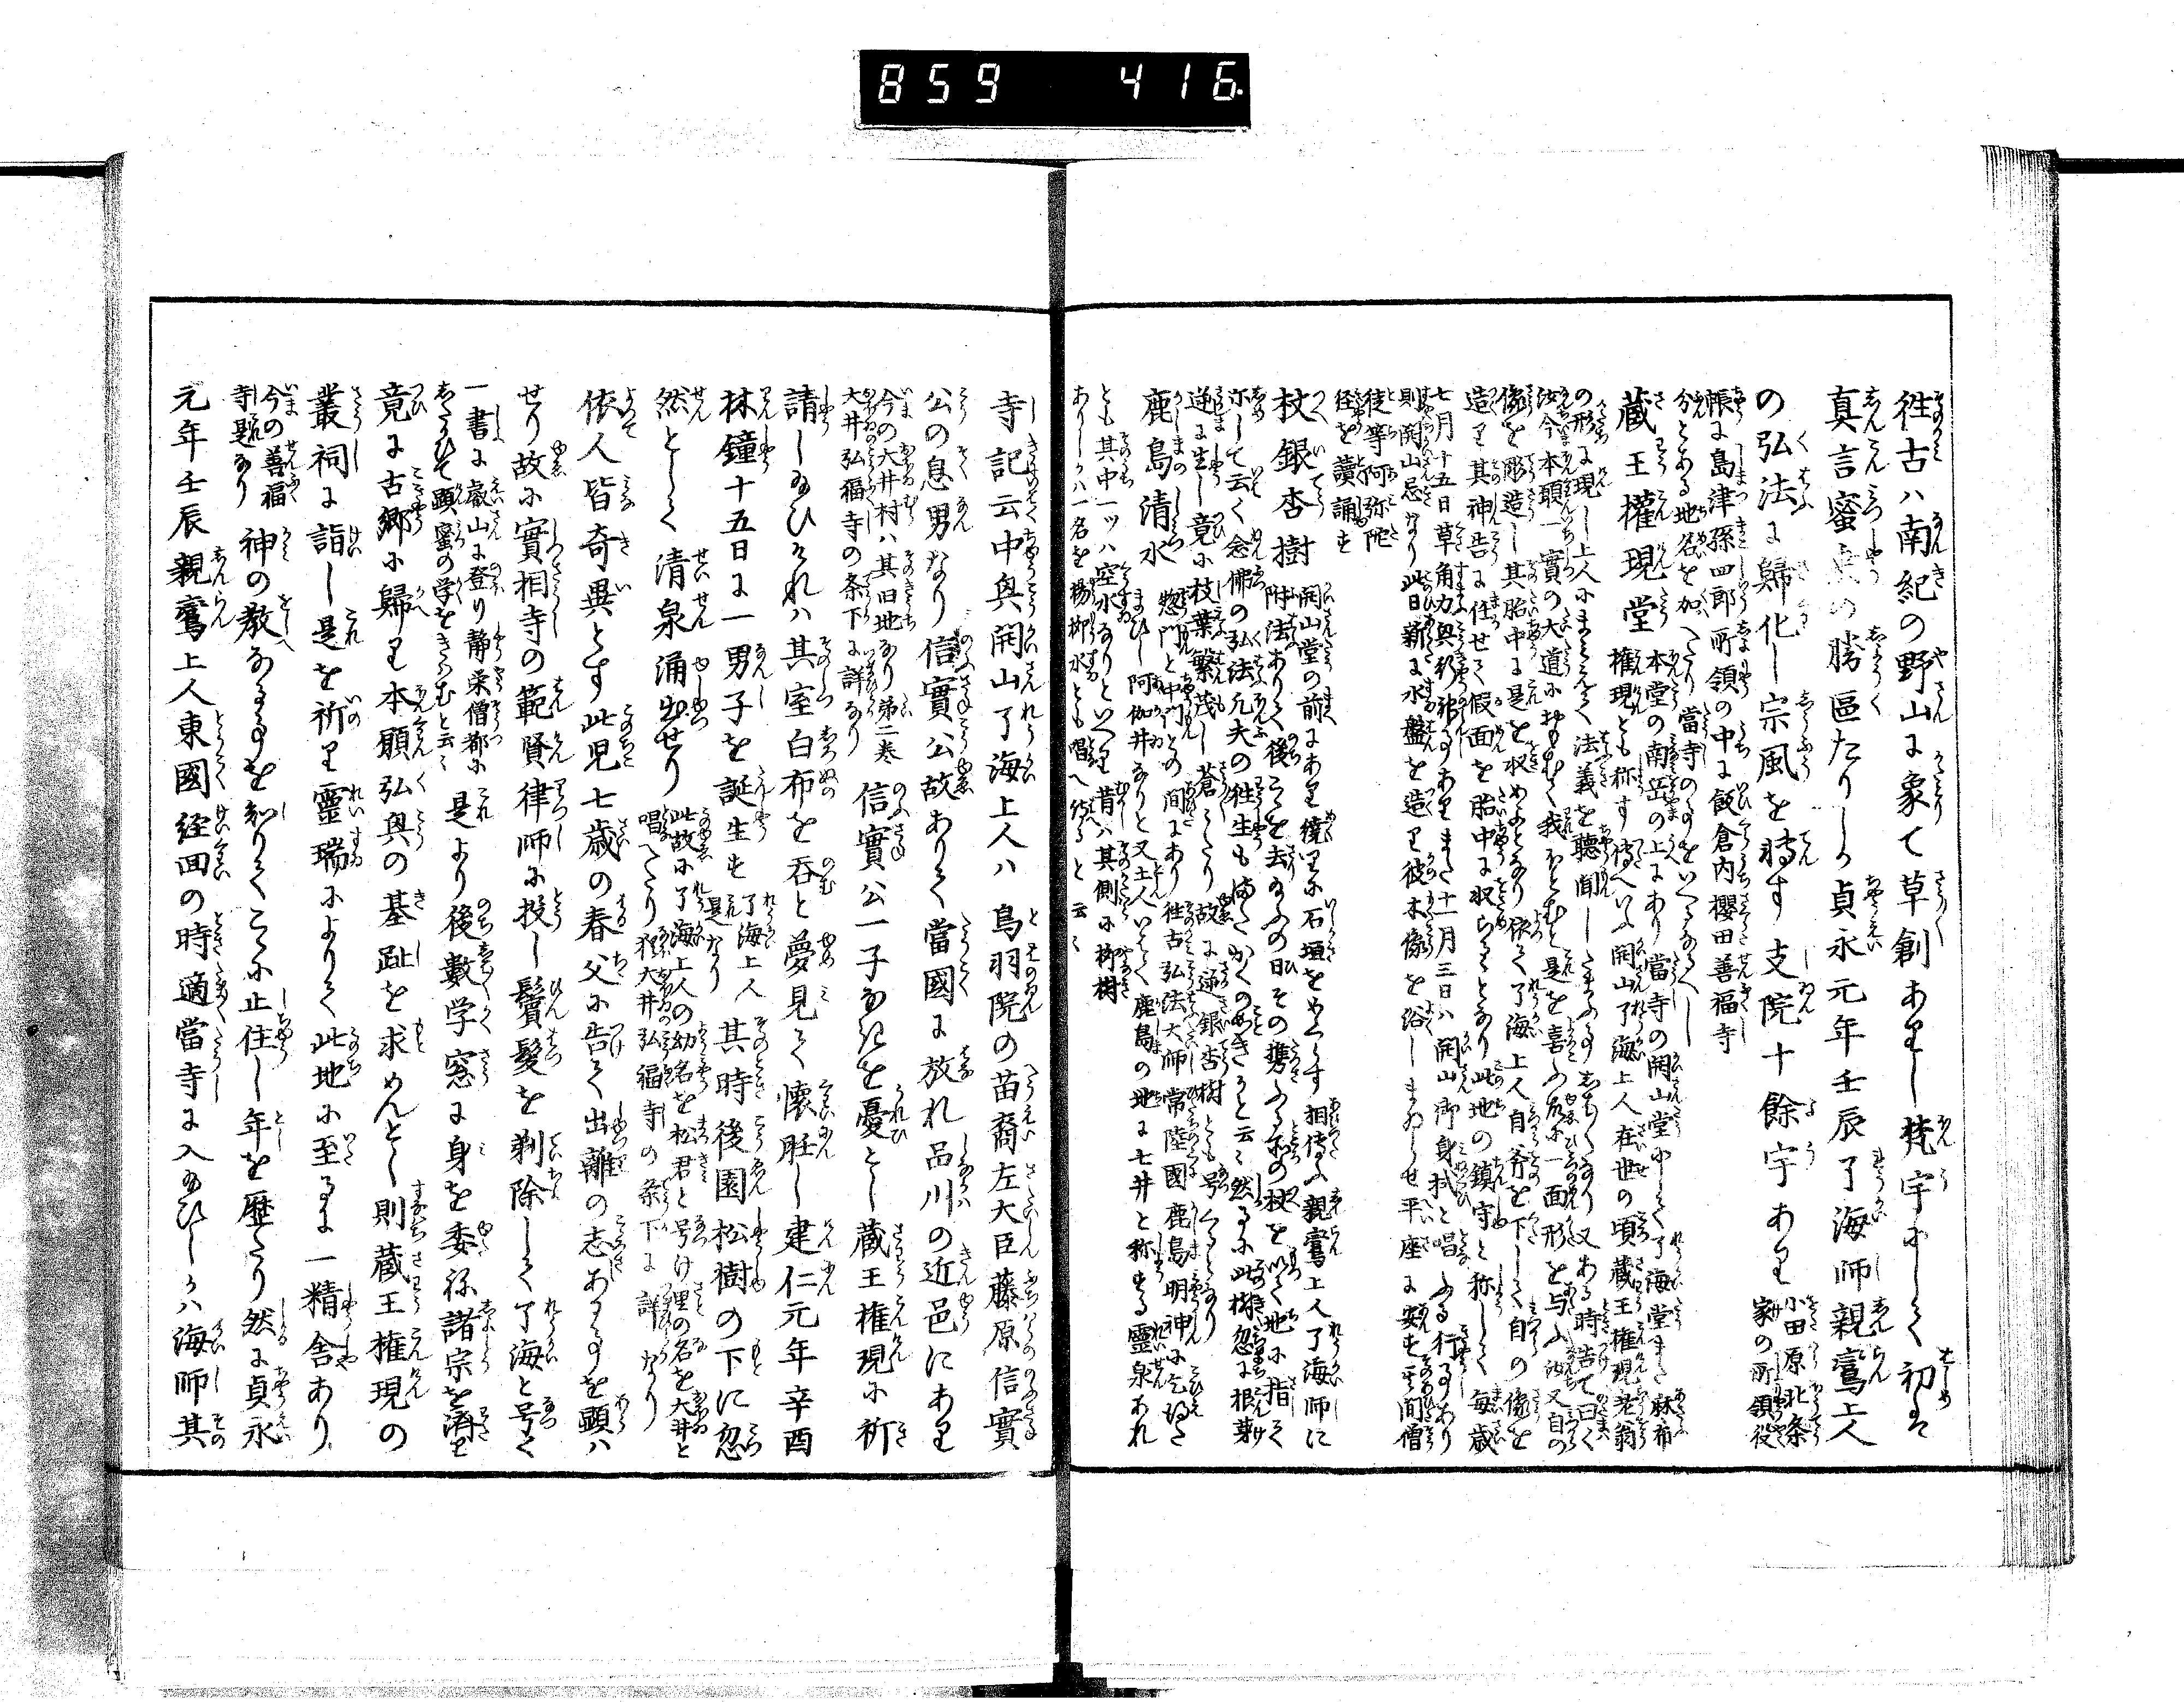 859 416
往古ハ南紀の野山に象て草創ありし梵宇にして初は
真言蜜の勝區たりしか貞永元年壬辰了海師親鸞上人
の弘法に歸化し宗風を轉す支院十餘宇あり小田原北条家の所領役
帳に島津孫四郎所領の中に飯倉内櫻田善福寺
分とある地名を加へたり當寺の事をいへるなるへし
蔵王權現堂 本堂の南岳の上にあり當寺の開山堂にして了海堂また麻布
權現とも称す傳へいふ開山了海上人在世の頃蔵王権現老翁
の形に現し上人にまみえて法義を聴聞したまふ又ある時告て曰く
汝今本願一實の大道におもむく我もとむと是を喜ふ尓一面形を与ふ汝又自の
像を彫造し其胎中に是を収めよとなり依て了海上人自斧を下して自の像を
造り其神告に任せて假面を胎中に収らるとなり此地の鎮守と称して毎歳
七月十五日草角力興行あり また十一月三日ハ開山御身拭と唱ふる行事あり
則開山忌なり此日新に水盤を造り彼木像を浴しまゐらせ平座に安す其間僧
徒等阿弥陀
経を讀誦す
杖銀杏樹 開山堂の前にあり繞りに石垣をめくらす相傳ふ親鸞上人了海師に
附法ありて後こゝを去給ふの日その携ふる所の杖を以て地に指て
示して云く念佛の弘法凡夫の往生もまたかくのことき云々然るに此樹忽に根芽
逆に生し竟に枝葉繁茂し蒼々たり故に逆銀杏樹とも号くるとなり
鹿島清水 惣門と中門との間にあり往古弘法大師常陸國鹿島明神に乞得
まひし阿伽井なりと又土人いはく鹿島の地に七井と称する靈泉あれ
とも其中一ッハ空水なりといへり昔ハ其側に柳樹
ありしかハ一名を楊柳水とも唱へ侍ると云々
寺記云中興開山了海上人ハ鳥羽院の苗裔左大臣藤原信實
公の息男なり信實公故ありて當國に放れ品川の近邑にあり
今の大井村ハ其旧地なり第二巻
大井弘福寺の条下に詳なり 信實公一子なきを憂とし蔵王権現に祈
請し給ひけれハ其室白布を呑と夢見て懐胎し建仁元年辛酉
林鐘十五日に一男子を誕生す 了海上人是なり 其時後園松樹の下に忽
然として清泉涌出せり 此故に了海上人の幼名を松君と号け里の名を大井と
唱へたり猶大井弘福寺の条下に詳なり
依人皆奇異とす此児七歳の春父に告て出離の志ある事を顕ハ
せり故に實相寺の範賢律師に投し鬢髪を剃除して了海と号く
一書に叡山に登り静栄僧都に
したかひて顕蜜の学をきハむと云々 是より後數学窓に身を委袮諸宗を濟り
竟に古郷に歸り本願弘興の基趾を求めんとし則蔵王権現の
叢祠に詣し是を祈り靈瑞によりて此地に至るに一精舎あり
今の善福
寺是なり 神の教なる事を知りてこゝに止住し年を歴たり然に貞永
元年壬辰親鸞上人東國経回の時適當寺に入給ひしかハ海師其